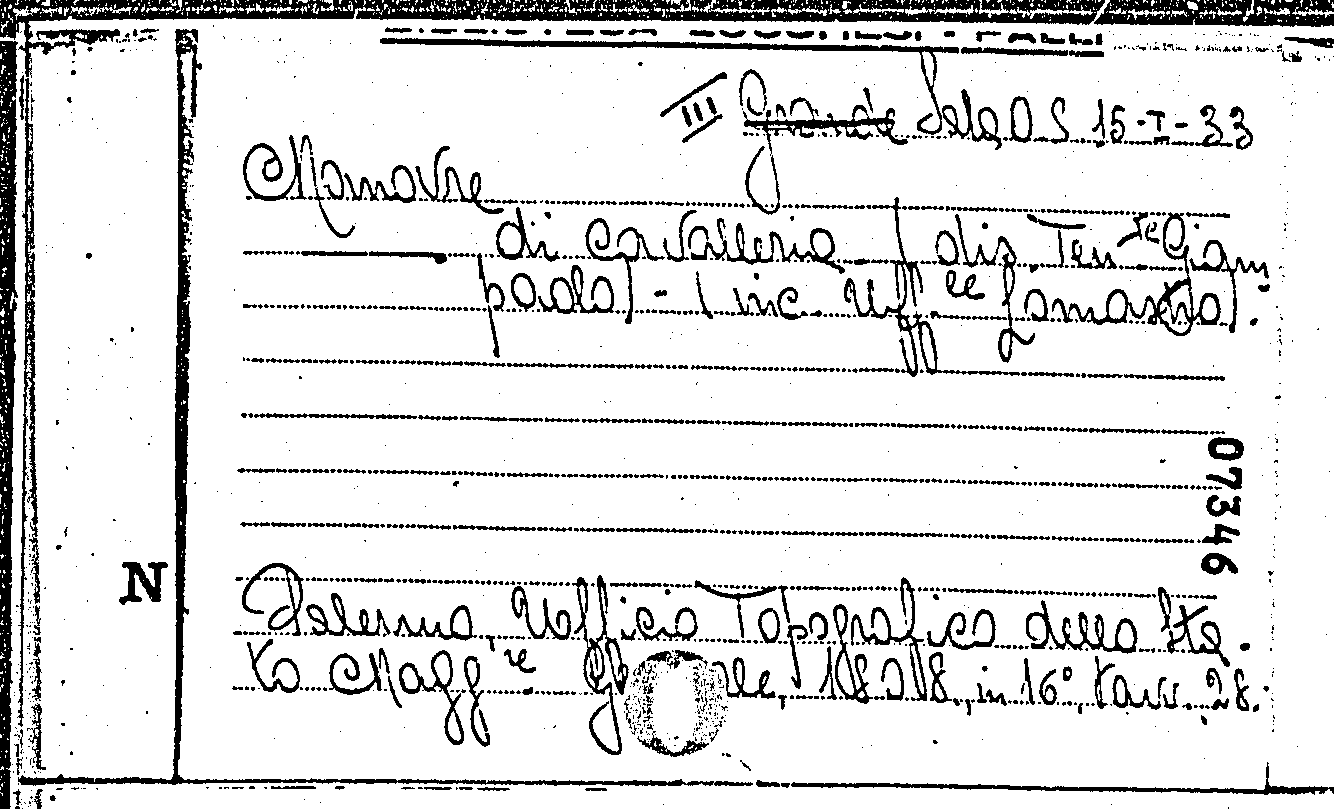 III Grande Sala, O S 15-I-33
Manovre
di Cavalleria (dis. Ten.te Giam
paolo) - (inc. Uff.le Lamastra).
07346
N
Palermo, Ufficio Topografico dello Sta-
to Magg.re 1808, in 16°, tavv. 28.